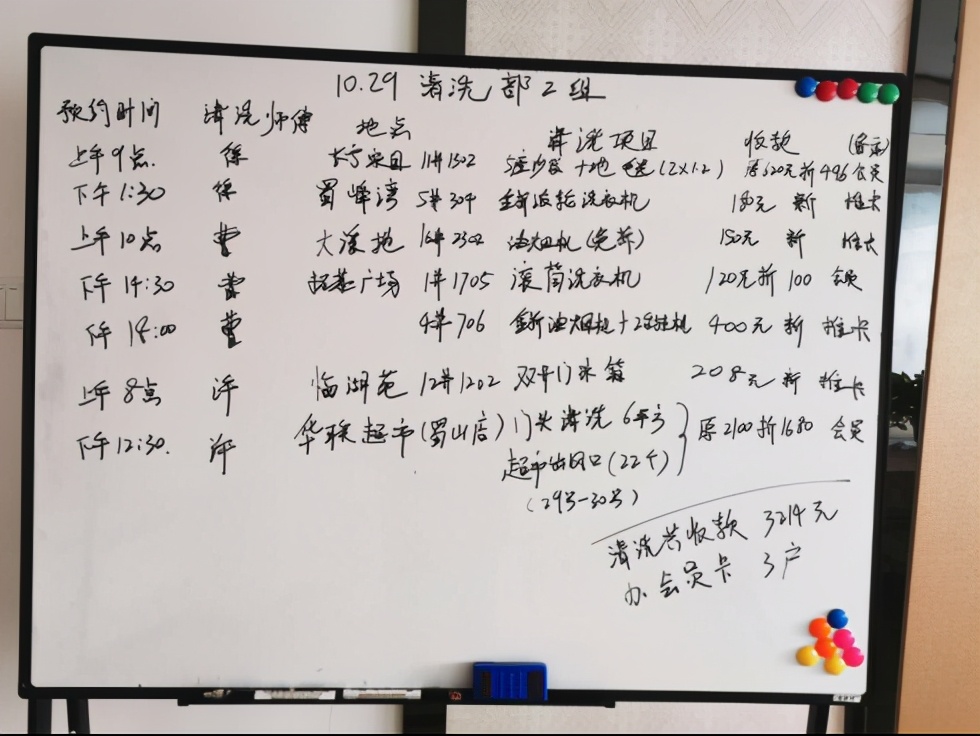 10.29 清洗部2组
预约时间 清洗师傅 地点 清洗项目 收款 (备注)
上午9点. 徐 11#1302 5座沙发+地毯(2×1.2) 原620元折496会员
下午1:30 徐 蜀峰湾 5#304 全新波轮洗衣机 180元 新 推卡
上午10点 曹 大溪地 16#2302 油烟机(免拆) 150元 新 推卡
下午14:30 曹 拓基广场 1#1705 滚筒洗衣机 120元折100 会员
下午18:00 曹 4#706 油烟机+2挂机 400元 新 推卡
上午8点 许 临湖苑 12#1202 双开门冰箱 208元 新 推卡
下午12:30. 许 华联超市(蜀山店) 门头清洗6平方 原2100折1680 会员
超市出风口(22个)
(29号-30号)
清洗共收款 3214元
办会员卡 3户